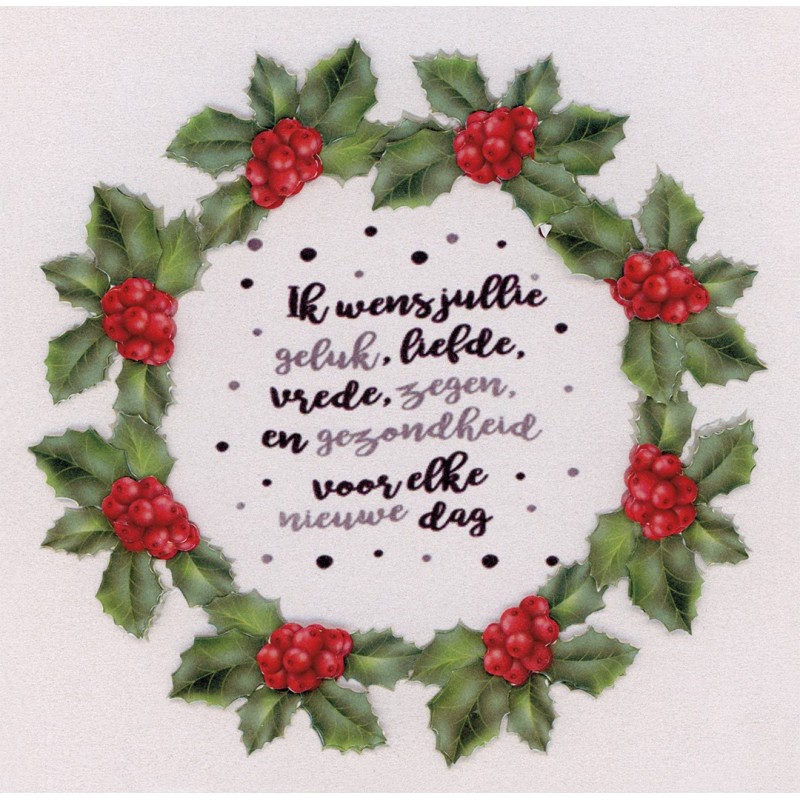 Ik wens jullie
geluk, liefde,
vrede, zegen,
en gezondheid
voor elke
nieuwe dag